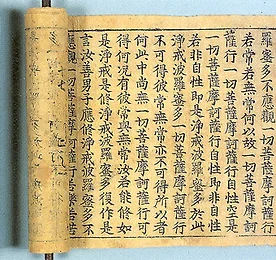 羅蜜多不應觀一切菩薩摩訶薩行
若常若無常何以故一切菩薩摩訶
薩行一切菩薩摩訶薩行自性空是
一切菩薩摩訶薩行自性即非自性
若非自性即是淨戒波羅蜜多於此
淨戒波羅蜜多一切菩薩摩訶薩行
不可得彼常無常亦不可得所以者
何此中尚無一切菩薩摩訶薩行可
得何況有彼常與無常汝若能修如
是淨戒是修淨戒波羅蜜多復作是
言汝善男子應修淨戒波羅蜜多不
應觀一切菩薩摩訶薩行若樂若苦